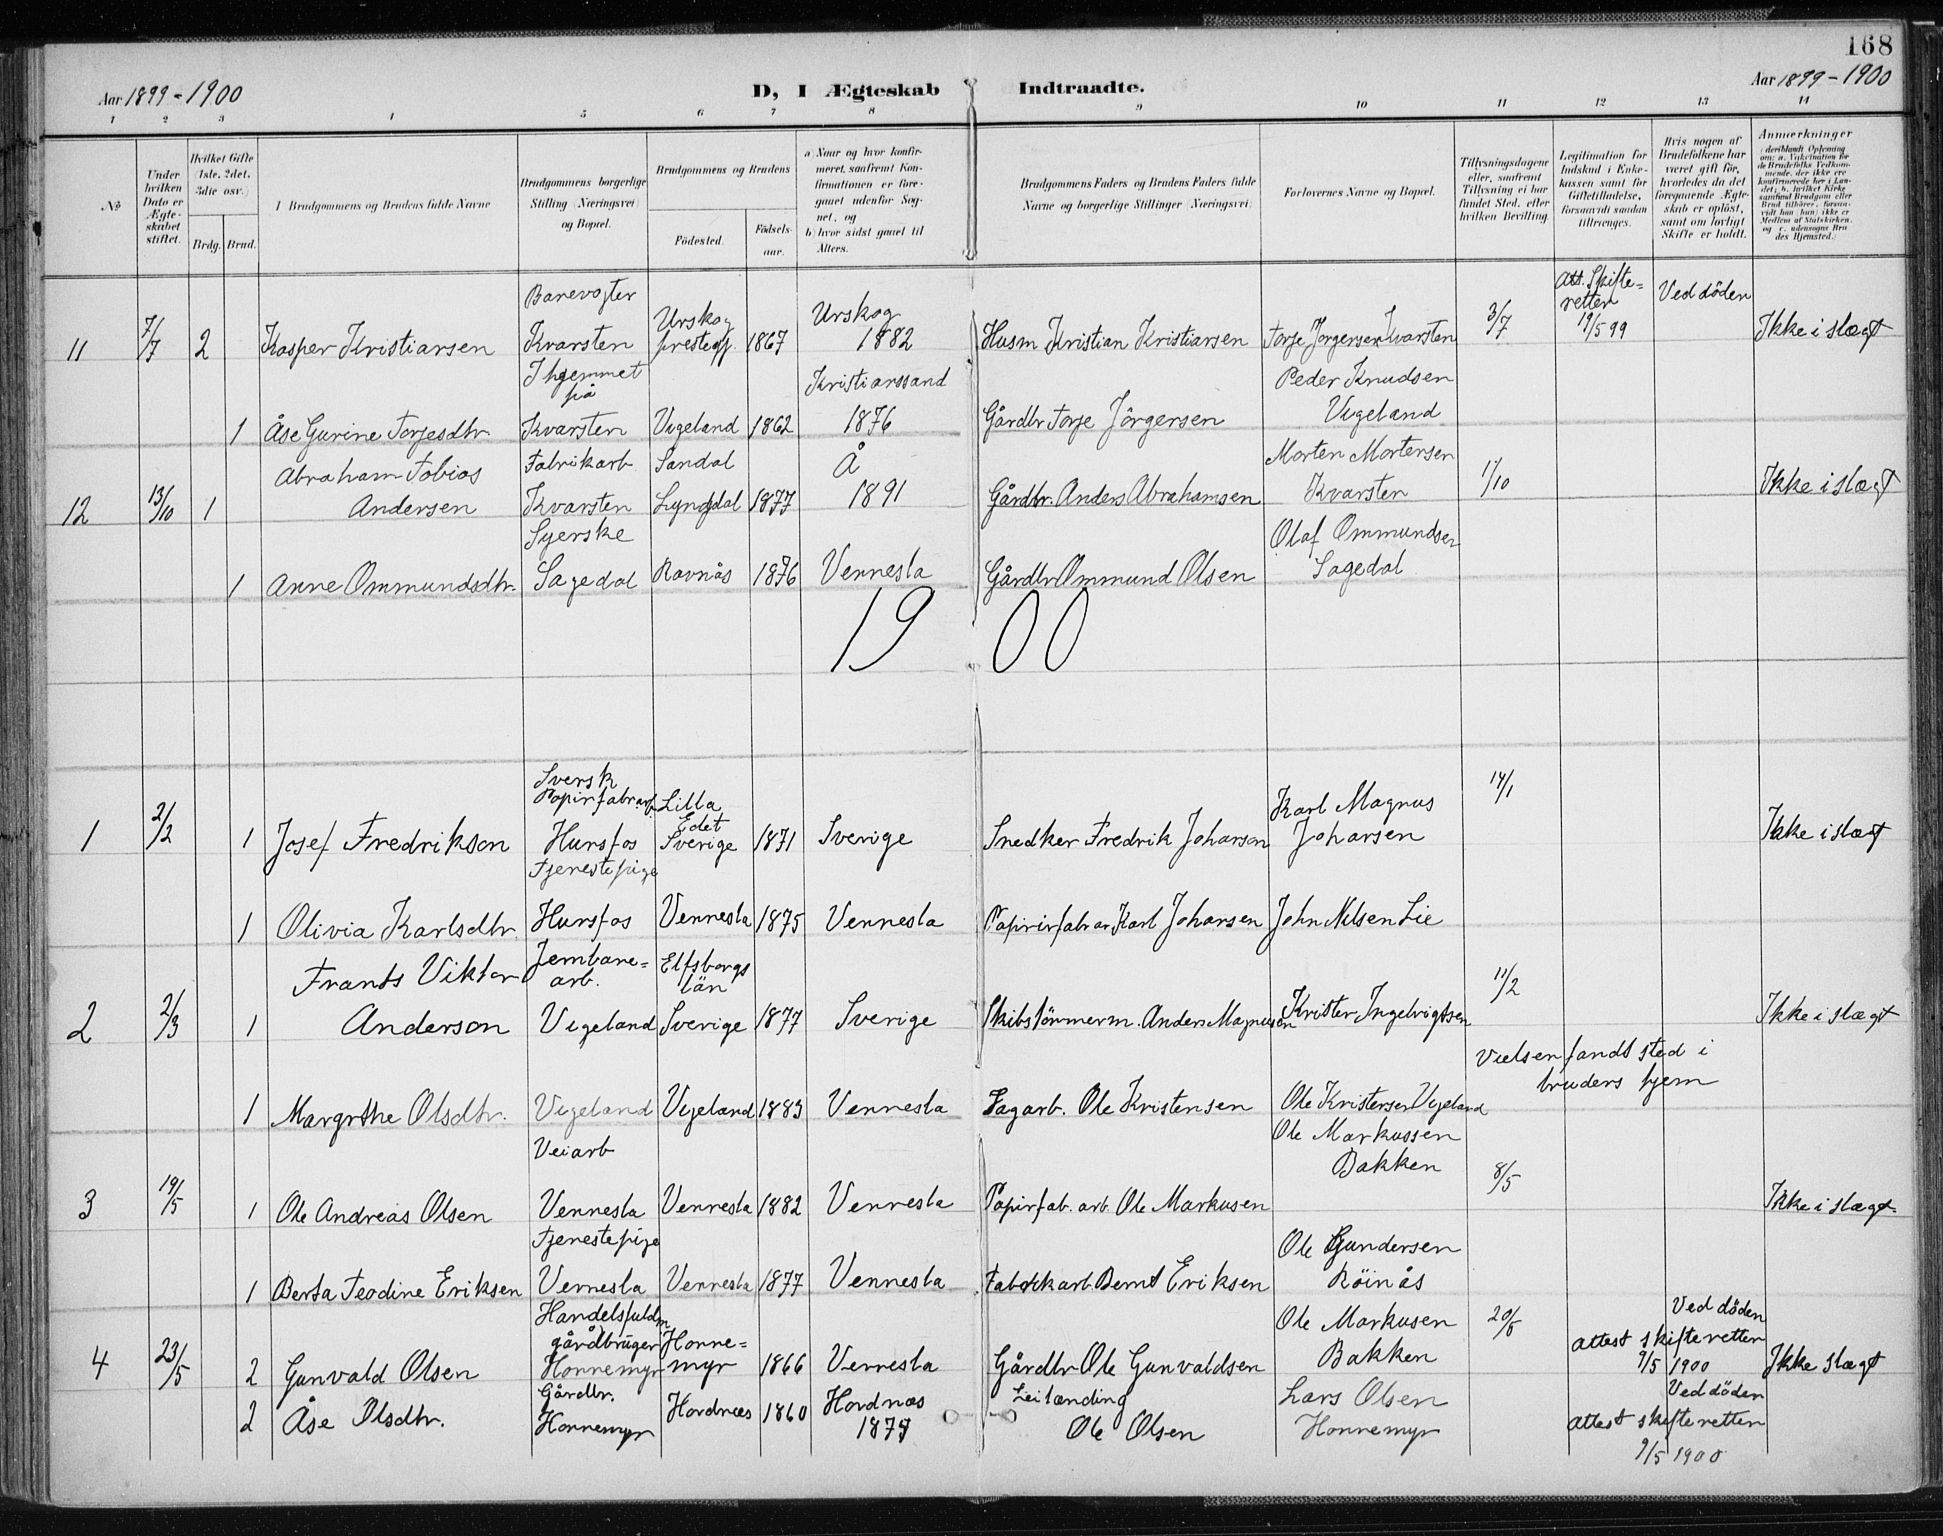 168
Aar 1899-1900
D, I Ægteskab Indtraadte.
Aar 1899-1900
1 2 3 4 5 6 7 8 9 10 11 12 13 14
No
Under hvilken Dato er Ægteskabet stiftet.
Hvilket Gifte (1ste, 2det, 3die osv.)
Brdg. Brud.
Brudgommens og Brudens fulde Navne
Brudgommens borgerlige Stilling (Næringsvei) og Bopæl.
Brudgommens og Brudens
Födested.
Födselsaar.
a) Naar og hvor konfirmeret, saafremt Konfirmationen er foregaaet udenfor Sognet, og
b) hvor sidst gaaet til Alters.
Brudgommens Faders og Brudens Faders fulde Navne og borgerlige Stillinger (Næringsvei)
Forlovernes Navne og Bopæl.
Tillysningsdagene eller, saafremt Tillysning ei har fundet Sted, efter hvilken Bevilling.
Legitimation for Indskud i Enkekassen samt for Giftetilladelse, forsaavidt saadan tiltrænges.
Hvis nogen af Brudefolkene har været gift för, hvorledes da det foregaaende Ægteskab er oplöst, samt om lovligt Skifte er holdt.
Anmærkninger
11 7/7 2 Kasper Kristiansen Banevogter Kvarsten Urskog prestegj. 1867 Urskog 1882 Husm Kristian Kristiansen Torje Jörgensen Kvarsten 3/7 Att. Skifteretten 19/5 99 Ved döden Ikke i slægt
1 Åse Gurine Torjesdtr I hjemmet på Kvarsten Vigeland 1862 Kristianssand 1876 Gårdbr Torje Jörgensen Peder Knudsen Vigeland
12 13/10 1 Abraham Tobias Andersen Fabrikarb Kvarsten Sandal Lyngdal 1877 Å 1891 Gårdbr. Anders Abrahamsen Morten Mortensen Kvarsten 1/10 Ikke i slægt
1 Anne Ommundsdtr. Syerske Sagedal Ravnås 1876 Vennesla Gårdbr Ommund Olsen Olaf Ommundsen Sagedal
1900
1 2/2 1 Josef Fredrikson Svensk Papirfabr.arb Hunsfos Lilla Edet Sverige 1871 Sverige Snedker Fredrik Johanson Karl Magnus Johansen 14/1 Ikke i slægt
1 Olivia Karlsdtr. Tjenestepige Hunsfos Vennesla 1875 Vennesla Papirfabr ar Karl Johansen John Nilsen Lie
2 2/3 1 Frants Viktor Anderson Jernbanearb. Vigeland Elfsborgs län Sverige 1877 Sverige Skibstömmerm. Anders Magnuson Krister Ingebrigtsen 11/2 Ikke i slægt
Vielsen fandt sted i brudens hjem
1 Margrthe Olsdtr. Vigeland Vigeland 1883 Vennesla Sagarb. Ole Kristensen Ole Kristensen Vigeland
3 19/5 1 Ole Andreas Olsen Veiarb Vennesla Vennesla 1882 Vennesla Papirfab. arb. Ole Markusen Ole Markussen Bakken 8/5 Ikke i slægt.
1 Berta Teodine Eriksen Tjenestepige Vennesla Vennesla 1877 Vennesla Fabrikkarb Bernt Eriksen Ole Gundersen Röinås
4 23/5 2 Gunvald Olsen Handelsfuldm gårdbruger Honnemyr Honnemyr 1866 Vennesla Gårdbr Ole Gunvaldsen Ole Markusen Bakken 20/5 attest skifteretten 9/5 1900 Ved döden Ikke slægt
2 Åse Olsdtr. Gårdbr. Honnemyr Hordnæs 1860 Hordnæs Leilænding Ole Olsen Lars Olsen Honnemyr attest skifteretten 9/5 1900 Ved döden